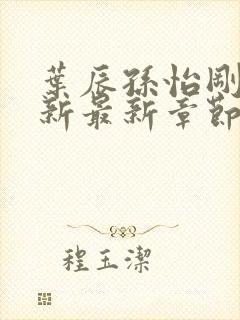 葉辰孫怡剛
新最新章節
程玉潔